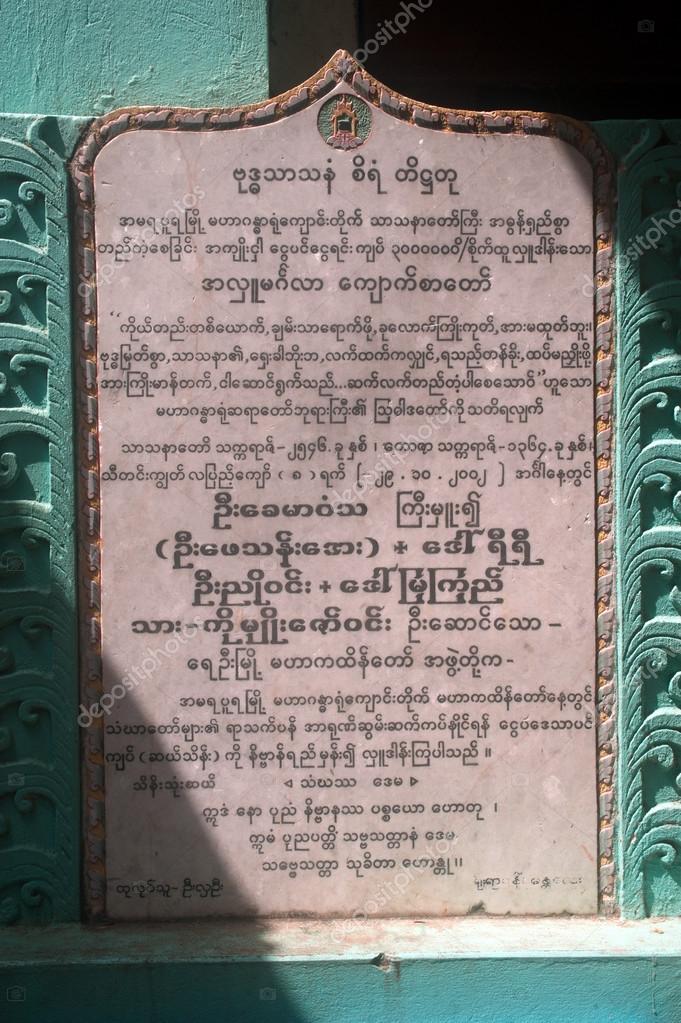 ဗုဒ္ဓသာသနံ စိရံ တိဋ္ဌတု
အမရပူရမြို့ မဟာဂန္ဓာရုံကျောင်းတိုက် သာသနာတော်ကြီး အဓွန့်ရှည်စွာ
တည်တံ့စေခြင်း အကျိုးငှါ ငွေပင်ငွေရင်း ကျပ် ၃၀၀၀၀၀ဝိ/စိုက်ထူလှူဒါန်းသော
အလှူမင်္ဂလာ ကျောက်စာတော်
"ကိုယ်တည်းတစ်ယောက်, ချမ်းသာရောက်ဖို့, ခုလောက်ကြိုးကုတ်, အားမထုတ်ဘူး၊
ဗုဒ္ဓမြတ်စွာ, သာသနာ၏, ရှေးခါဘိုးဘ, လက်ထက်ကလျှင်, ရသည်တန်ခိုး, ထပ်မညှိုးဖို့
အားကြိုးမာန်တက်, ငါဆောင်ရွက်သည်...ဆက်လက်တည်တံ့ပါစေသောဝ်"ဟူသော
မဟာဂန္ဓာရုံဆရာတော်ဘုရားကြီး၏ ဩဝါဒတော်ကို သတိရလျက်
သာသနာတော် သက္ကရာဇ်-၂၅၄၆.ခုနှစ်၊ ကောဇာ သက္ကရာဇ်-၁၃၆၄.ခုနှစ်၊
သီတင်းကျွတ် လပြည့်ကျော် (၈) ရက် [ ၂၉ . ၁၀ . ၂၀၀၂ ] အင်္ဂါနေ့တွင်
ဦးခေမာဝံသ ကြီးမှူး၍
(ဦးဖေသန်းအေး) + ဒေါ်ရီရီ
ဦးညိုဝင်း + ဒေါ်မြမြကြည်
သား-ကိုမျိုးဇော်ဝင်း ဦးဆောင်သော-
ရေဦးမြို့ မဟာကထိန်တော် အဖွဲ့တို့က-
အမရပူရမြို့ မဟာဂန္ဓာရုံကျောင်းတိုက် မဟာကထိန်တော်နေ့တွင်
သံဃာတော်များ၏ ရာသက်ပန် အာရုဏ်ဆွမ်းဆက်ကပ်နိုင်ရန် ငွေပဒေသာပင်
ကျပ် (ဆယ်သိန်း) ကို နိဗ္ဗာန်ရည်မှန်း၍ လှူဒါန်းကြပါသည်။
သံဃဿ ဒေမ
ဣဒံ နော ပုညံ နိဗ္ဗာနဿ ပစ္စယော ဟောတု ၊
ဣမံ ပုညပတ္တိံ သဗ္ဗသတ္တာနံ ဒေမ
သဗ္ဗေသတ္တာ သုခိတာ ဟောန္တု ။
ထုလုပ်သူ-ဦးလှဦး
depositphotos